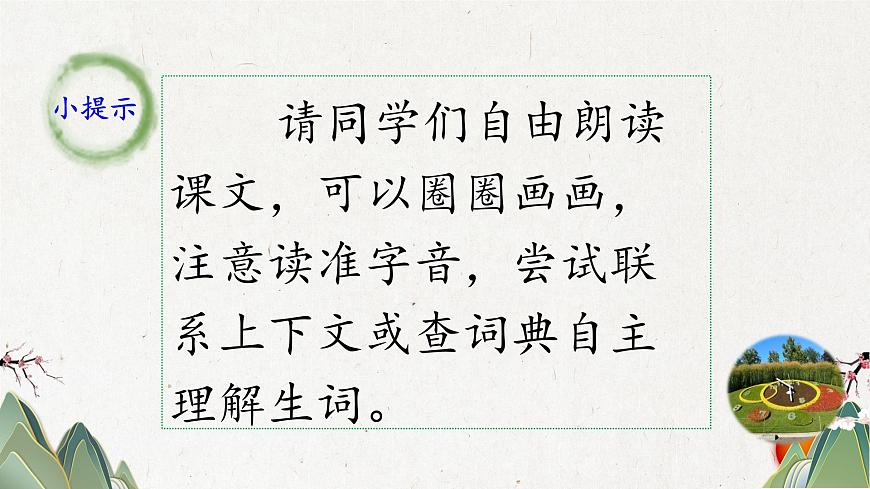 小提示
请同学们自由朗读
课文，可以圈圈画画，
注意读准字音，尝试联
系上下文或查词典自主
理解生词。